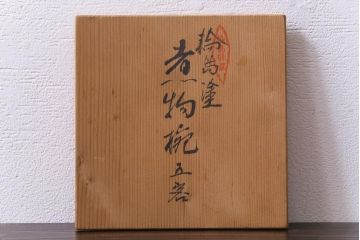 輪島塗
煮物椀
五客